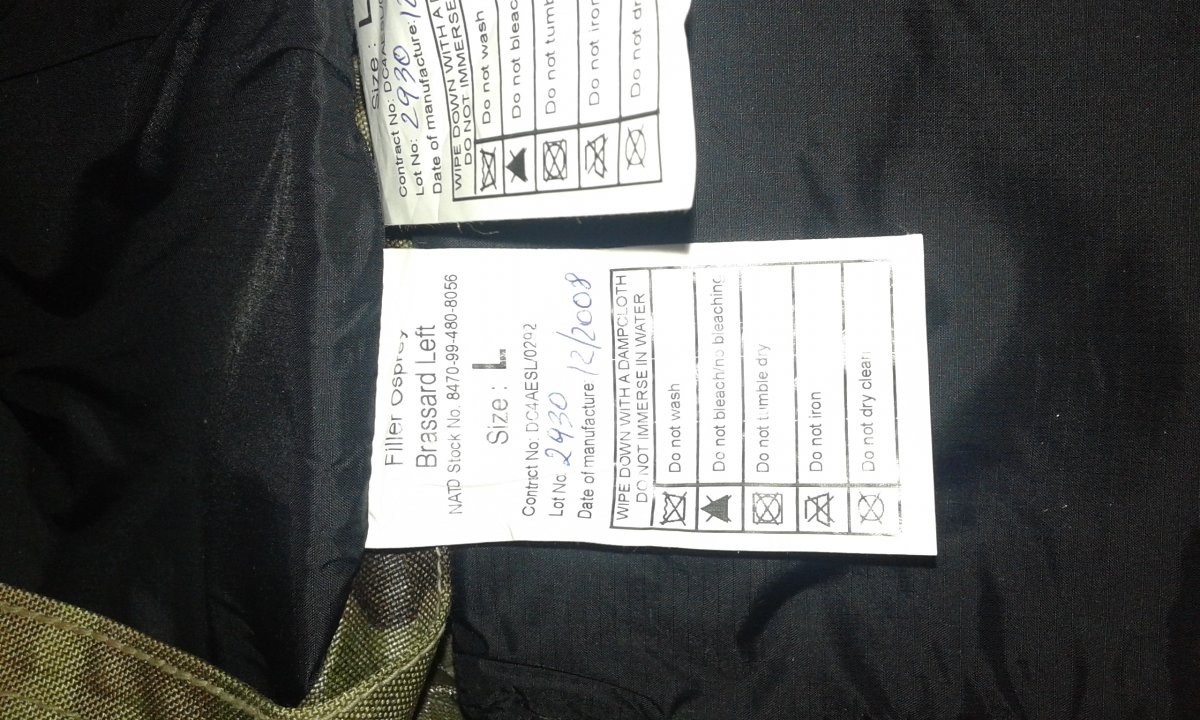 Size : L
Contract No: DC4A
Lot No: 2930
Date of manufacture:
WIPE DOWN WITH A
DO NOT IMMERSE
Do not wash
Do not bleac
Do not tumb
Do not iron
Do not dr
Filler Osprey
Brassard Left
NATO Stock No. 8470-99-480-8056
Size : L
Contract No: DC4AESL/0292
Lot No: 2930
Date of manufacture 12/2008
WIPE DOWN WITH A DAMPCLOTH
DO NOT IMMERSE IN WATER
Do not wash
Do not bleach/no bleaching
Do not tumble dry
Do not iron
Do not dry clean